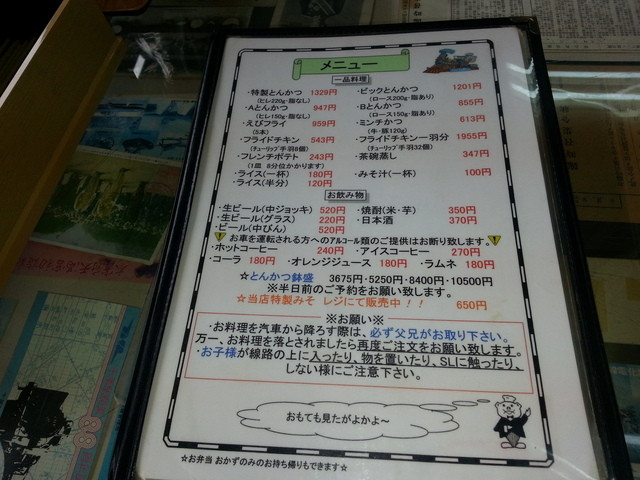 メニュー
一品料理
・特製とんかつ 1329円
(ヒレ220g・脂なし)
・Aとんかつ 947円
(ヒレ150g・脂なし)
・えびフライ 959円
(5本)
・フライドチキン 543円
(チューリップ手羽8個)
・フレンチポテト 243円
(1皿 8分位かかります)
・ライス(一杯) 180円
・ライス(半分) 120円
・ビックとんかつ 1201円
(ロース200g・脂あり)
・Bとんかつ 855円
(ロース150g・脂あり)
・ミンチかつ 613円
(牛・豚120g)
・フライドチキン一羽分 1955円
(チューリップ手羽32個)
・茶碗蒸し 347円
・みそ汁(一杯) 100円
お飲み物
・生ビール(中ジョッキ) 520円 ・焼酎(米・芋) 350円
・生ビール(グラス) 220円 ・日本酒 370円
・ビール(中びん) 520円
お車を運転される方へのアルコール類のご提供はお断り致します。
・ホットコーヒー 240円 ・アイスコーヒー 270円
・コーラ 180円 ・オレンジジュース 180円 ・ラムネ 180円
☆とんかつ鉢盛 3675円・5250円・8400円・10500円
※半日前のご予約をお願い致します。
☆当店特製みそ レジにて販売中！！ 650円
※お願い※
・お料理を汽車から降ろす際は、必ず父兄がお取り下さい。
万一、お料理を落とされましたら再度ご注文をお願い致します。
・お子様が線路の上に入ったり、物を置いたり、SLに触ったり、
しない様にご注意下さい。
おもても見たがよかよ～
☆お弁当 おかずのみのお持ち帰りもできます☆